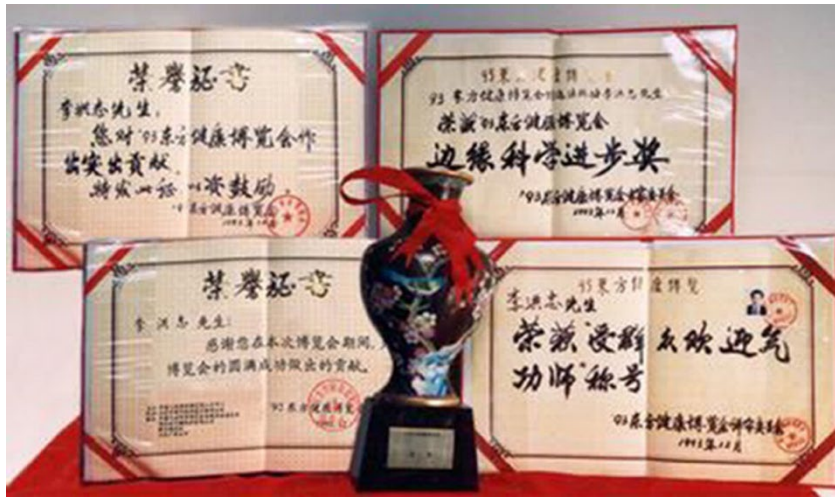 荣誉证书
李洪志先生:
您对'93东方健康博览会作
出突出贡献,
特发此证 以资鼓励。
'93东方健康博览会
1993年12月
'93东方健康博览会
'93东方健康博览会 李洪志先生
荣获'93东方健康博览会
边缘科学进步奖
'93东方健康博览会评审委员会
1993年12月
荣誉证书
李洪志先生:
感谢您在本次博览会期间,
博览会的圆满成功做出的贡献。
'93东方健康博览会
93东方健康博览
李洪志先生
荣获“受群众欢迎气
功师”称号
93东方健康博览会评审委员会
1993年12月